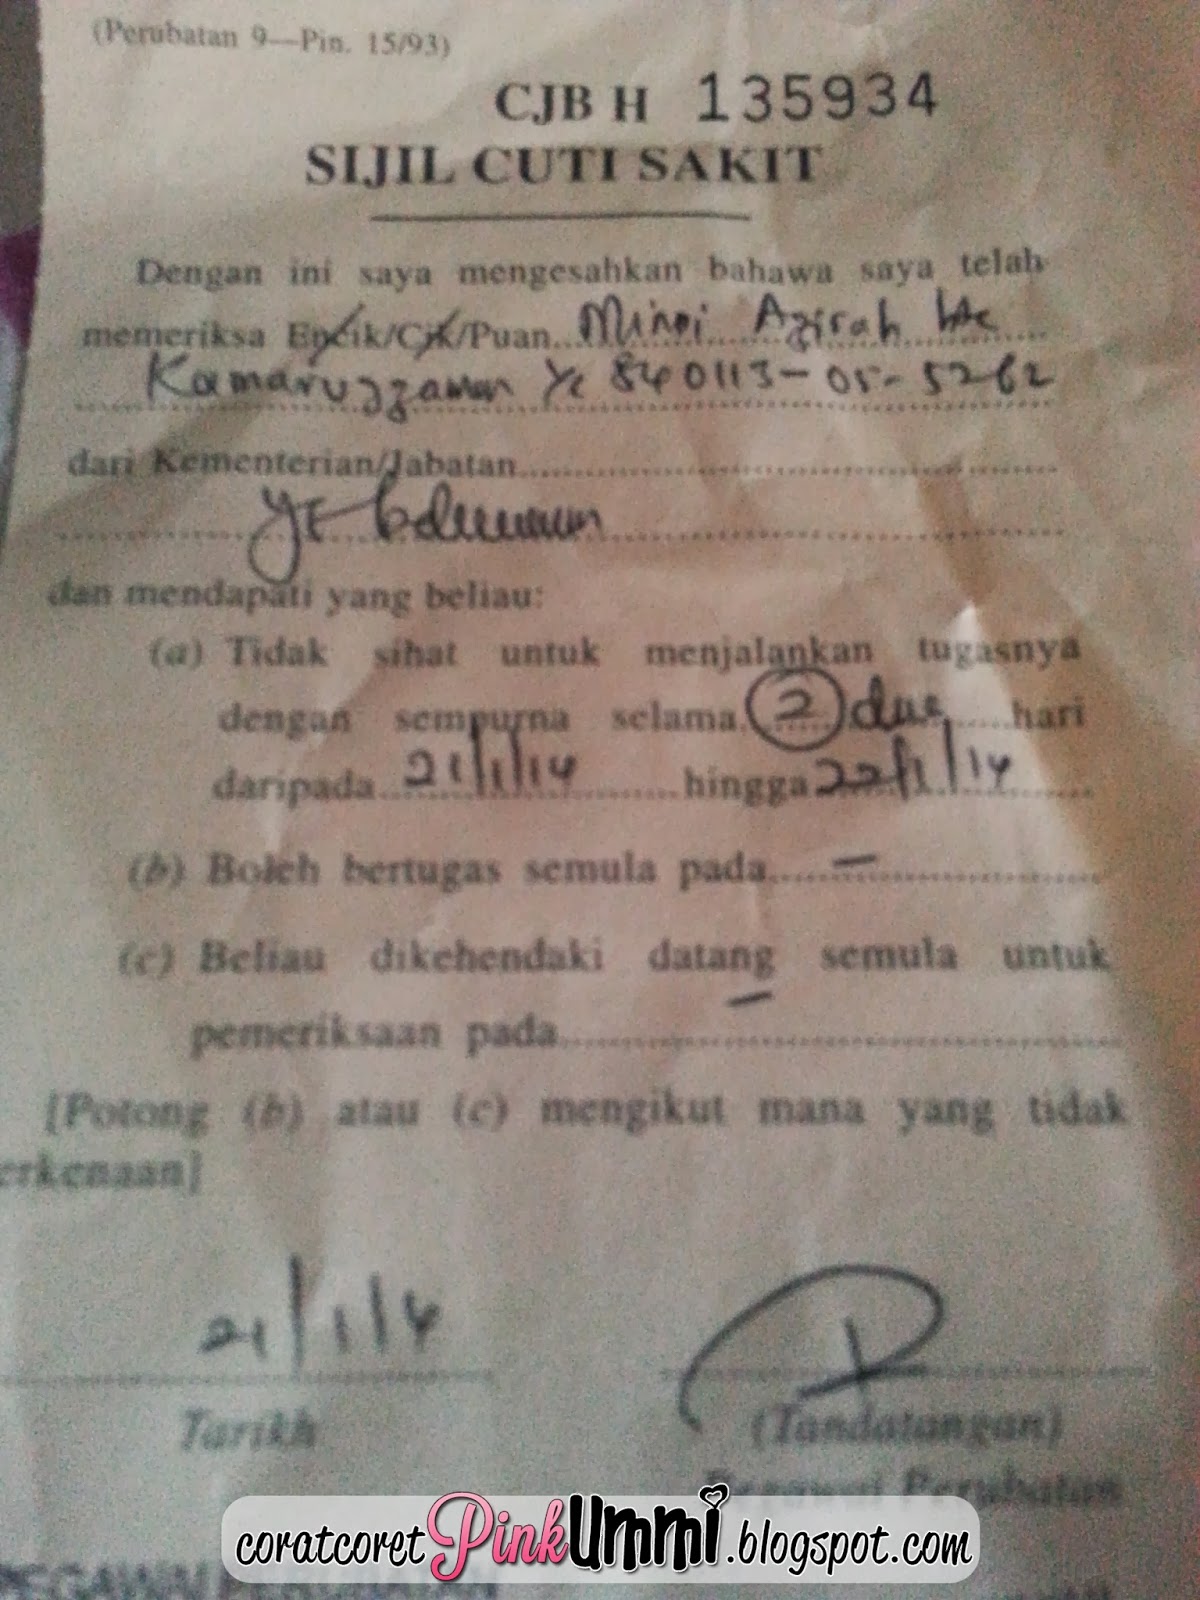 (Perubatan 9—Pin. 15/93)
CJB H 135934
SIJIL CUTI SAKIT
Dengan ini saya mengesahkan bahawa saya telah
memeriksa Encik/Cik/Puan... Azirah bte
Kamaruzzaman 840113-05-5262
dari Kementerian/Jabatan
dan mendapati yang beliau:
(a) Tidak sihat untuk menjalankan tugasnya
dengan sempurna selama 2 dua hari
daripada 21/1/14 hingga 22/1/14
(b) Boleh bertugas semula pada —
(c) Beliau dikehendaki datang semula untuk
—
pemeriksaan pada
[Potong (b) atau (c) mengikut mana yang tidak
erkenaan]
21/1/14
Tarikh (Tandatangan)
Pegawai Perubatan
coratcoretPinkUmmi.blogspot.com
PEGAWAI PERUBATAN